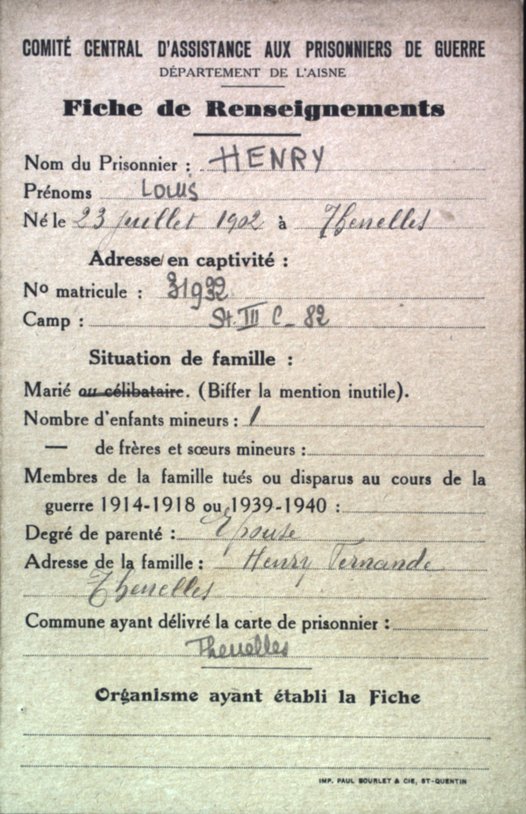 COMITÉ CENTRAL D'ASSISTANCE AUX PRISONNIERS DE GUERRE
DÉPARTEMENT DE L'AISNE
Fiche de Renseignements
Nom du Prisonnier : HENRY
Prénoms Louis
Né le 23 juillet 1902 à Thenelles
Adresse en captivité :
No matricule :
Camp : St. III C - 82
Situation de famille :
Marié ou célibataire. (Biffer la mention inutile).
Nombre d'enfants mineurs : 1
— de frères et sœurs mineurs :
Membres de la famille tués ou disparus au cours de la
guerre 1914-1918 ou 1939-1940 :
Degré de parenté : Epouse
Adresse de la famille : Henry Fernande
Thenelles
Commune ayant délivré la carte de prisonnier :
Thenelles
Organisme ayant établi la Fiche
IMP. PAUL BOURLET & CIE, ST-QUENTIN